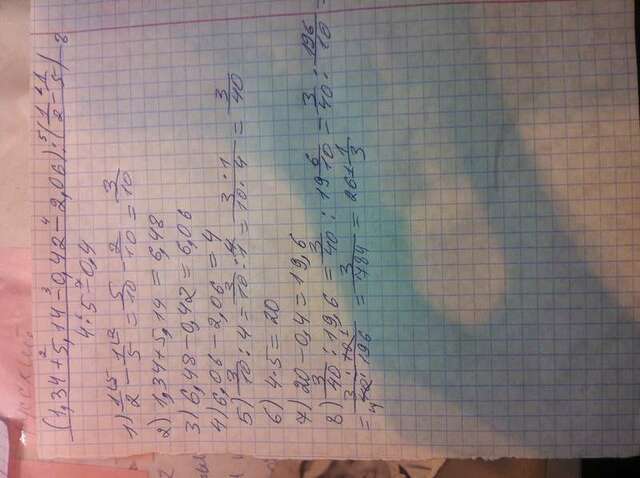 (1,34+5,14-0,42-2,06):(1/2-1/5)
4·5-0,4
1) 1/2-1/5=5/10-2/10=3/10
2) 1,34+5,14=6,48
3) 6,48-0,42=6,06
4) 6,06-2,06=4
5) 3/10:4=3/10:4/1=3·1/10·4=3/40
6) 4·5=20
7) 20-0,4=19,6
8) 3/40:19,6=3/40:19 6/10=3/40:196/10=
=3·10/40·196=3/784=261 1/3